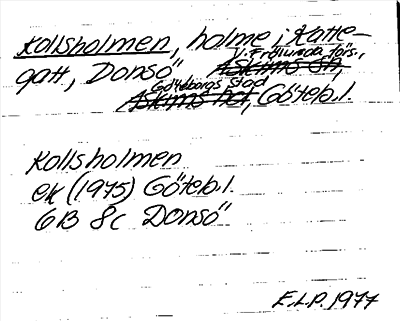 Kollsholmen, holme i Katte-
V. Frölunda förs.,
gatt, Donsö Askims sn,
Göteborgs stad
Askims hd, Göteb. l.
Kollsholmen
ek (1975) Göteb. l.
6B 8c Donsö
E.L.P. 1977